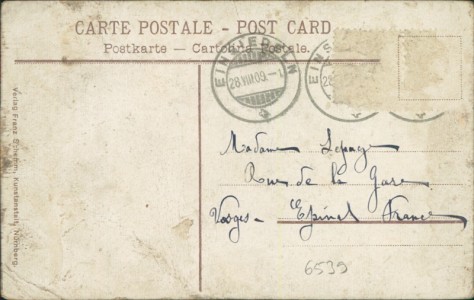 CARTE POSTALE - POST CARD
Postkarte — Cartolina Postale.
EINSIEDELN
28.VIII.09.-1
EINS
Madame Lepage
Rue de la Gare
Vosges - Epinal France
6539
Verlag Franz Schemm, Kunstanstalt, Nürnberg.